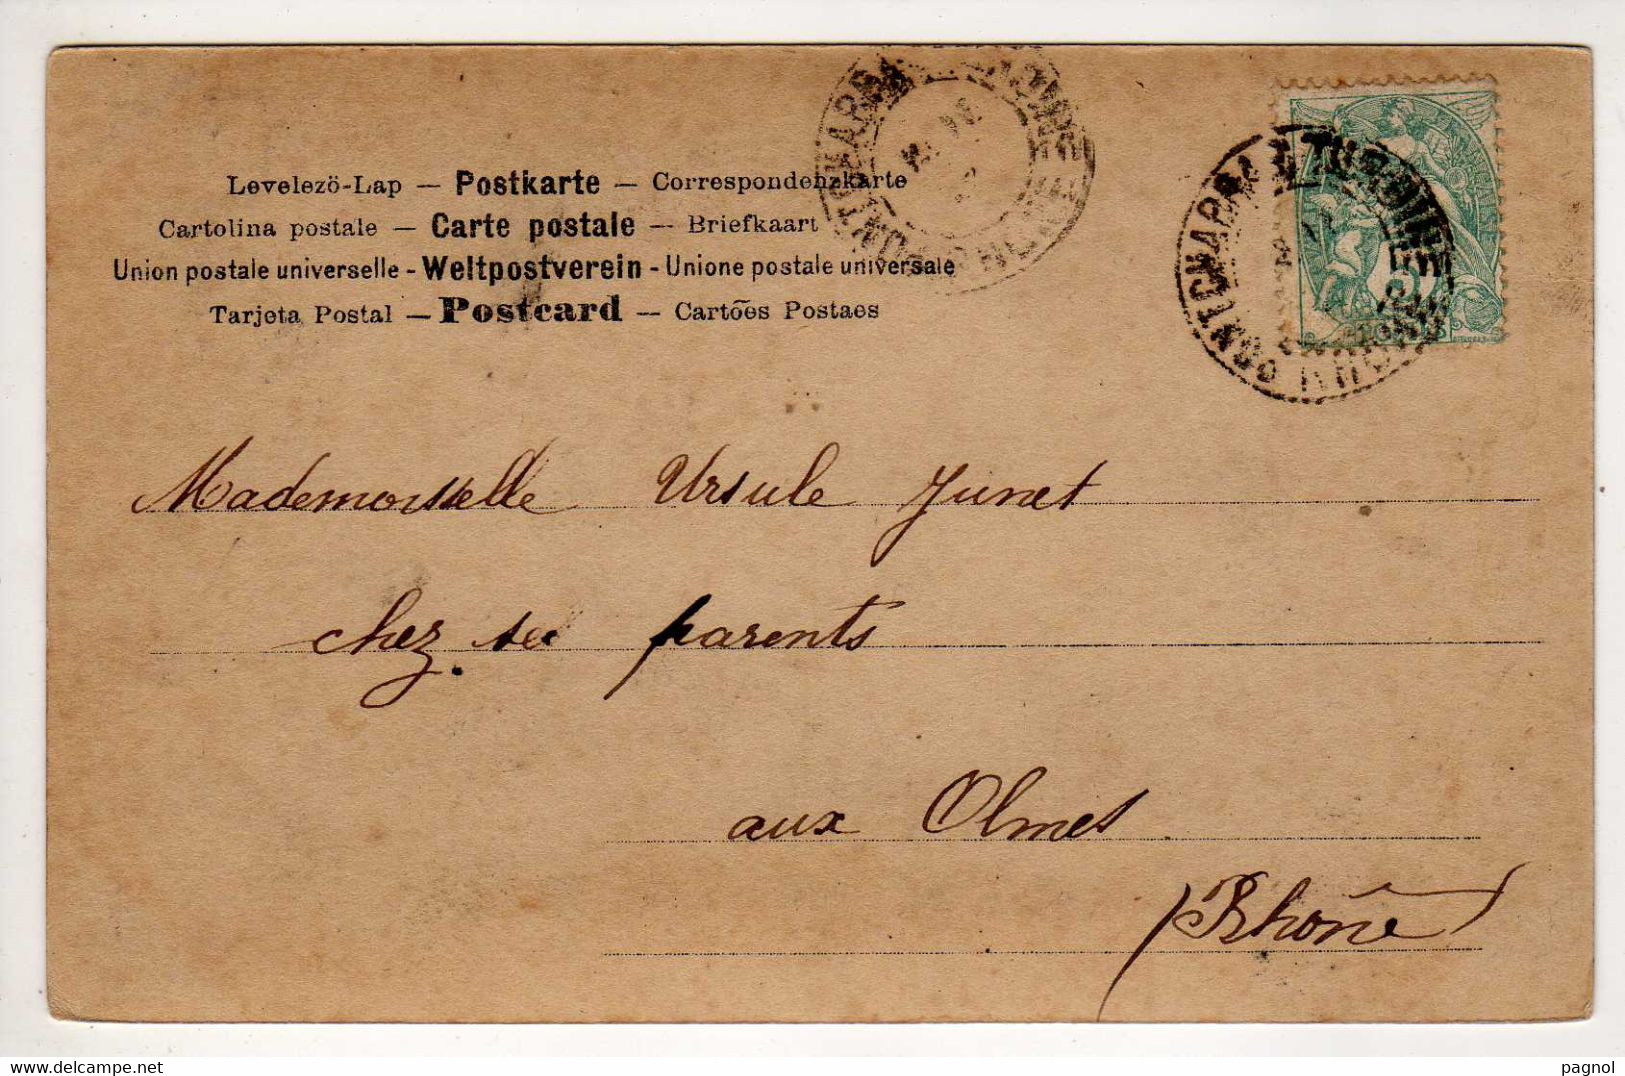 Levelezö-Lap — Postkarte — Correspondenzkarte
Cartolina postale — Carte postale — Briefkaart
Union postale universelle - Weltpostverein - Unione postale universale
Tarjeta Postal — Postcard — Cartões Postaes
Mademoiselle Ursule Junet
chez ses parents
aux Olmes
(Rhône)
pagnol